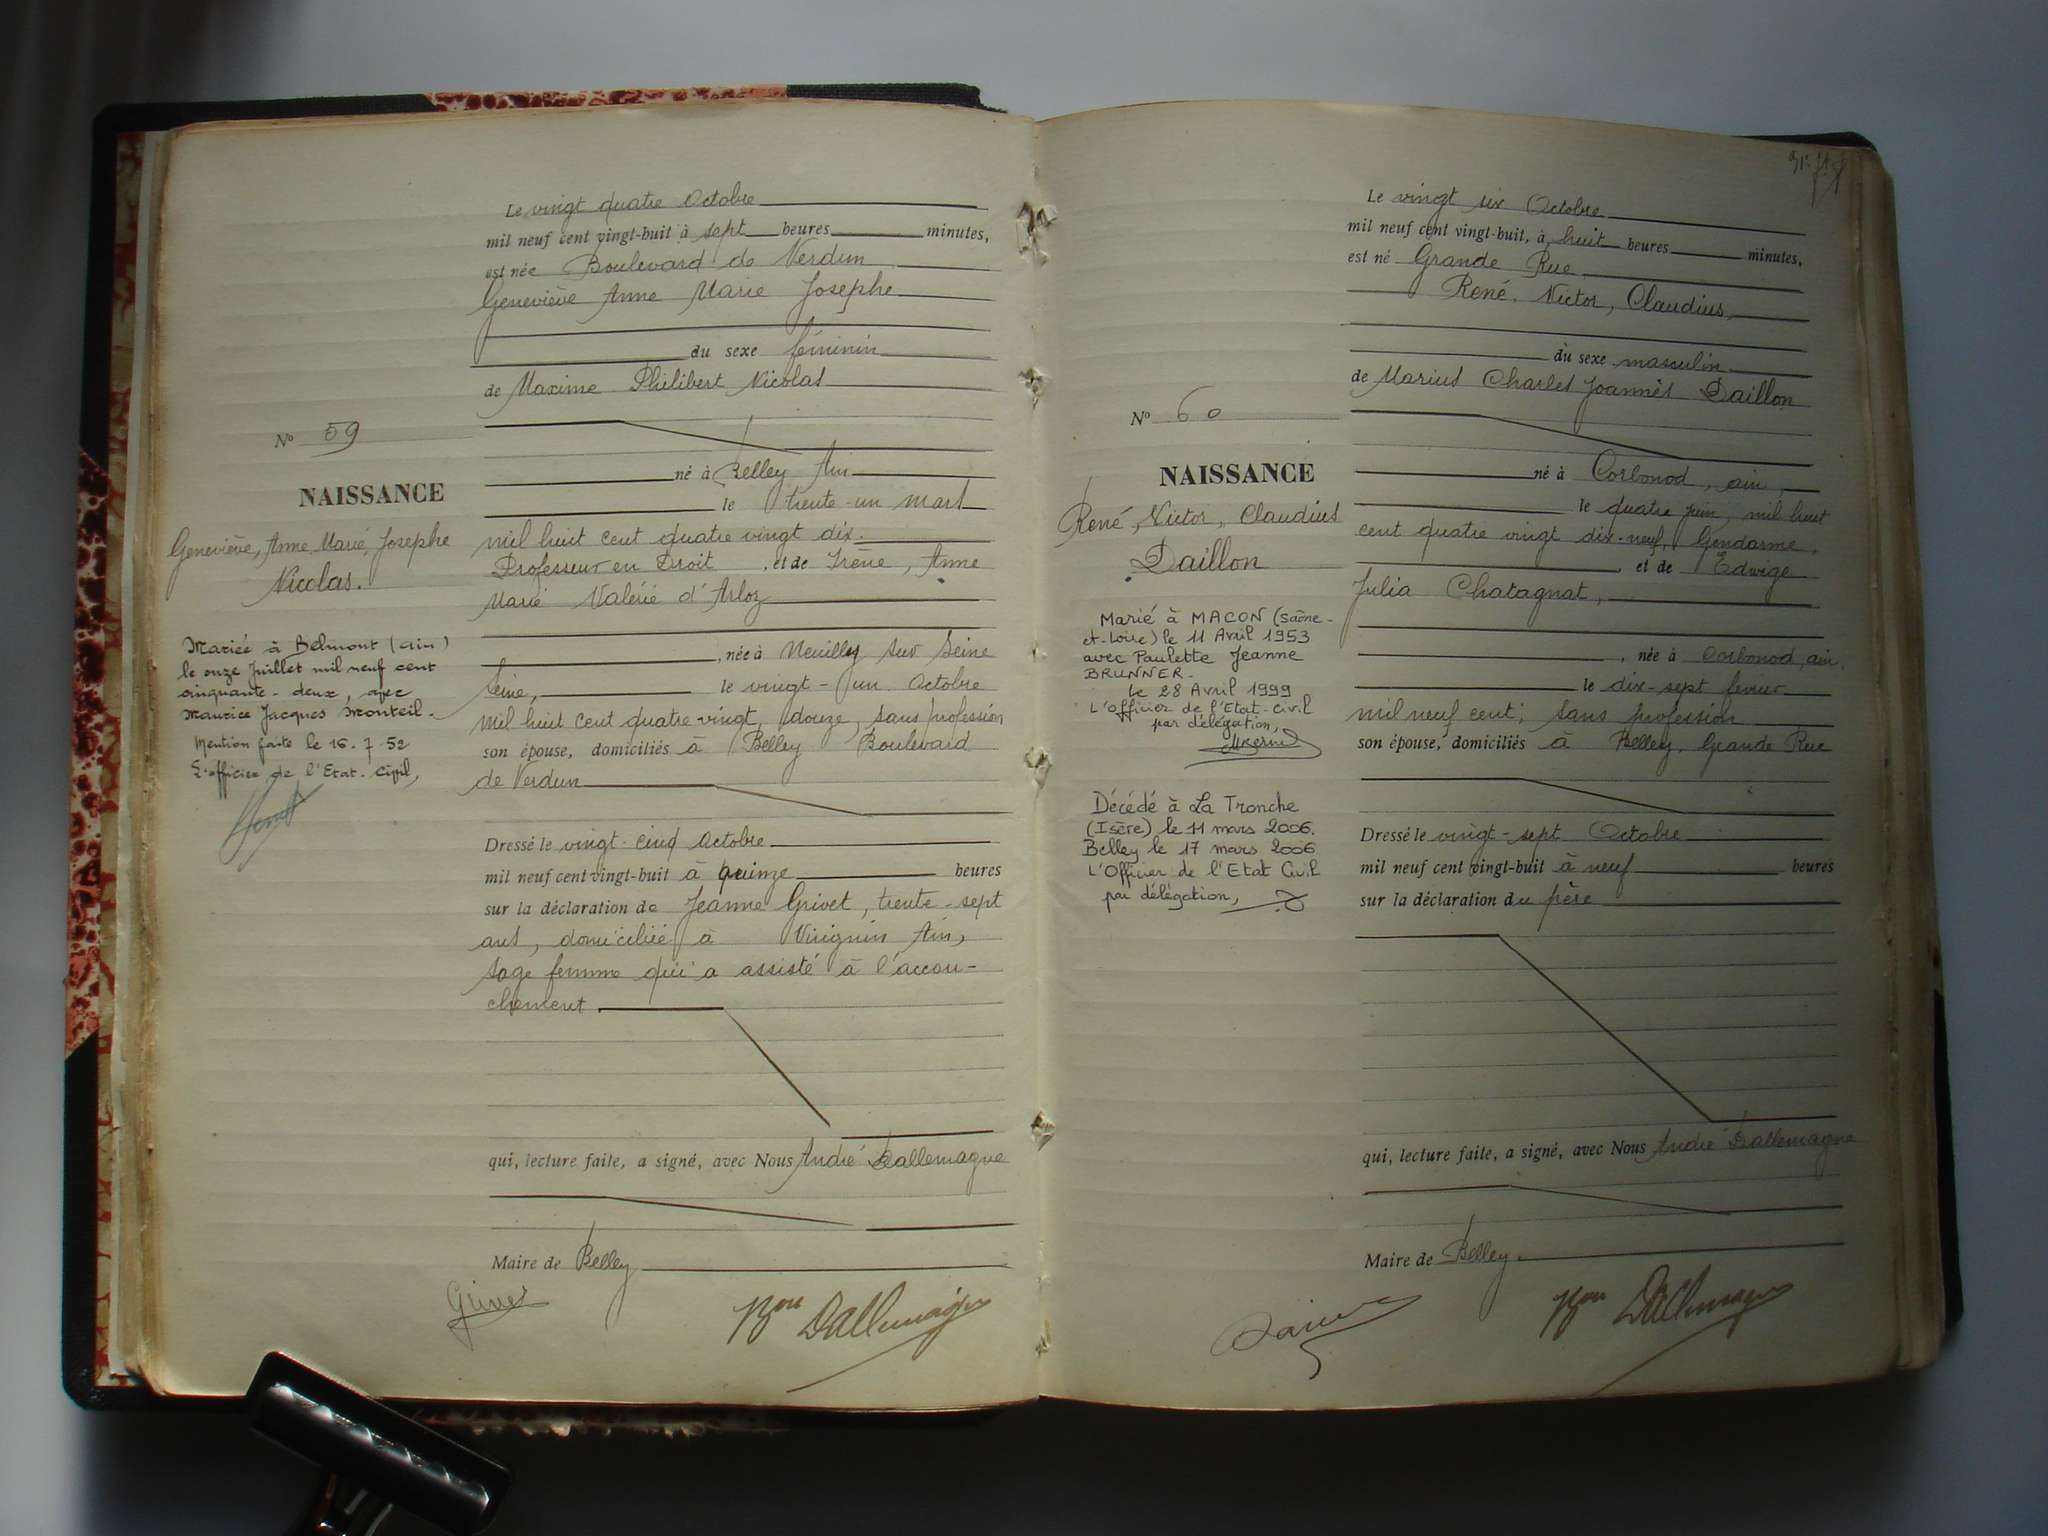 Le vingt quatre Octobre
mil neuf cent vingt-huit à sept heures minutes,
est née Boulevard de Verdun
Geneviève Anne Marie Josephe
du sexe féminin
de Maxime Philibert Nicolas
né à Belley Ain
le trente-un mars
mil huit cent quatre vingt dix.
Professeur en Droit, et de Irène, Anne
Marie Valérie d'Arloz
, née à Neuilly sur Seine
Seine, le vingt-un Octobre
mil huit cent quatre vingt, douze, sans profession
son épouse, domiciliés à Belley Boulevard
de Verdun
Dressé le vingt-cinq Octobre
mil neuf cent vingt-huit à quinze heures
sur la déclaration de Jeanne Grivet, trente-sept
ans, domiciliée à Virignin Ain,
sage femme qui a assisté à l'accou-
chement
qui, lecture faite, a signé, avec Nous André Dallemagne
Maire de Belley
Grivet
Bon Dallemagne
No 59
NAISSANCE
Geneviève, Anne, Marie, Josephe
Nicolas.
Mariée à Belmont (ain)
le onze Juillet mil neuf cent
cinquante-deux, avec
Maurice Jacques Monteil.
Mention faite le 16.7.52
L'officier de l'Etat-Civil,
Le vingt six Octobre
mil neuf cent vingt-huit, à huit heures minutes,
est né Grande Rue
René, Victor, Claudius,
du sexe masculin
de Marius Charles Joannès Daillon
né à Corbonod, ain,
le quatre juin, mil huit
cent quatre vingt dix-neuf, Gendarme,
et de Edwige
Julia Chatagnat,
, née à Corbonod, ain,
le dix-sept février
mil neuf cent; sans profession
son épouse, domiciliés à Belley, Grande Rue
Dressé le vingt-sept Octobre
mil neuf cent vingt-huit à neuf heures
sur la déclaration du père
qui, lecture faite, a signé, avec Nous André Dallemagne
Maire de Belley.
Bon Dallemagne
No 60
NAISSANCE
René, Victor, Claudius
Daillon
Marié à MACON (Saône-
et-Loire) le 11 Avril 1953
avec Paulette Jeanne
BRUNNER.
Le 28 Avril 1999
L'officier de l'Etat-Civil
par délégation,
Décédé à La Tronche
(Isère) le 11 mars 2006.
Belley le 17 mars 2006
L'Officier de l'Etat Civil
par délégation,